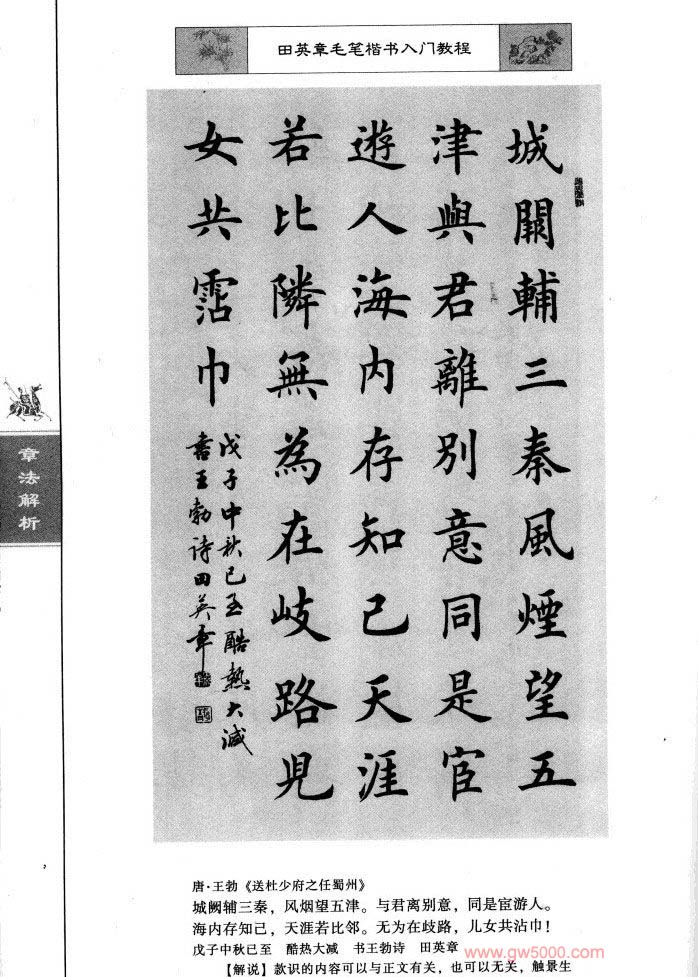 田英章毛笔楷书入门教程
城闕輔三秦風煙望五
津與君離別意同是宦
遊人海内存知己天涯
若比隣無為在岐路兒
女共霑巾
戊子中秋已至酷熱大減
書王勃詩田英章
章法解析
唐·王勃《送杜少府之任蜀州》
城阙辅三秦，风烟望五津。与君离别意，同是宦游人。
海内存知己，天涯若比邻。无为在歧路，儿女共沾巾！
戊子中秋已至　酷热大减　书王勃诗　田英章
【解说】款识的内容可以与正文有关，也可以无关，触景生
www.gw5000.com